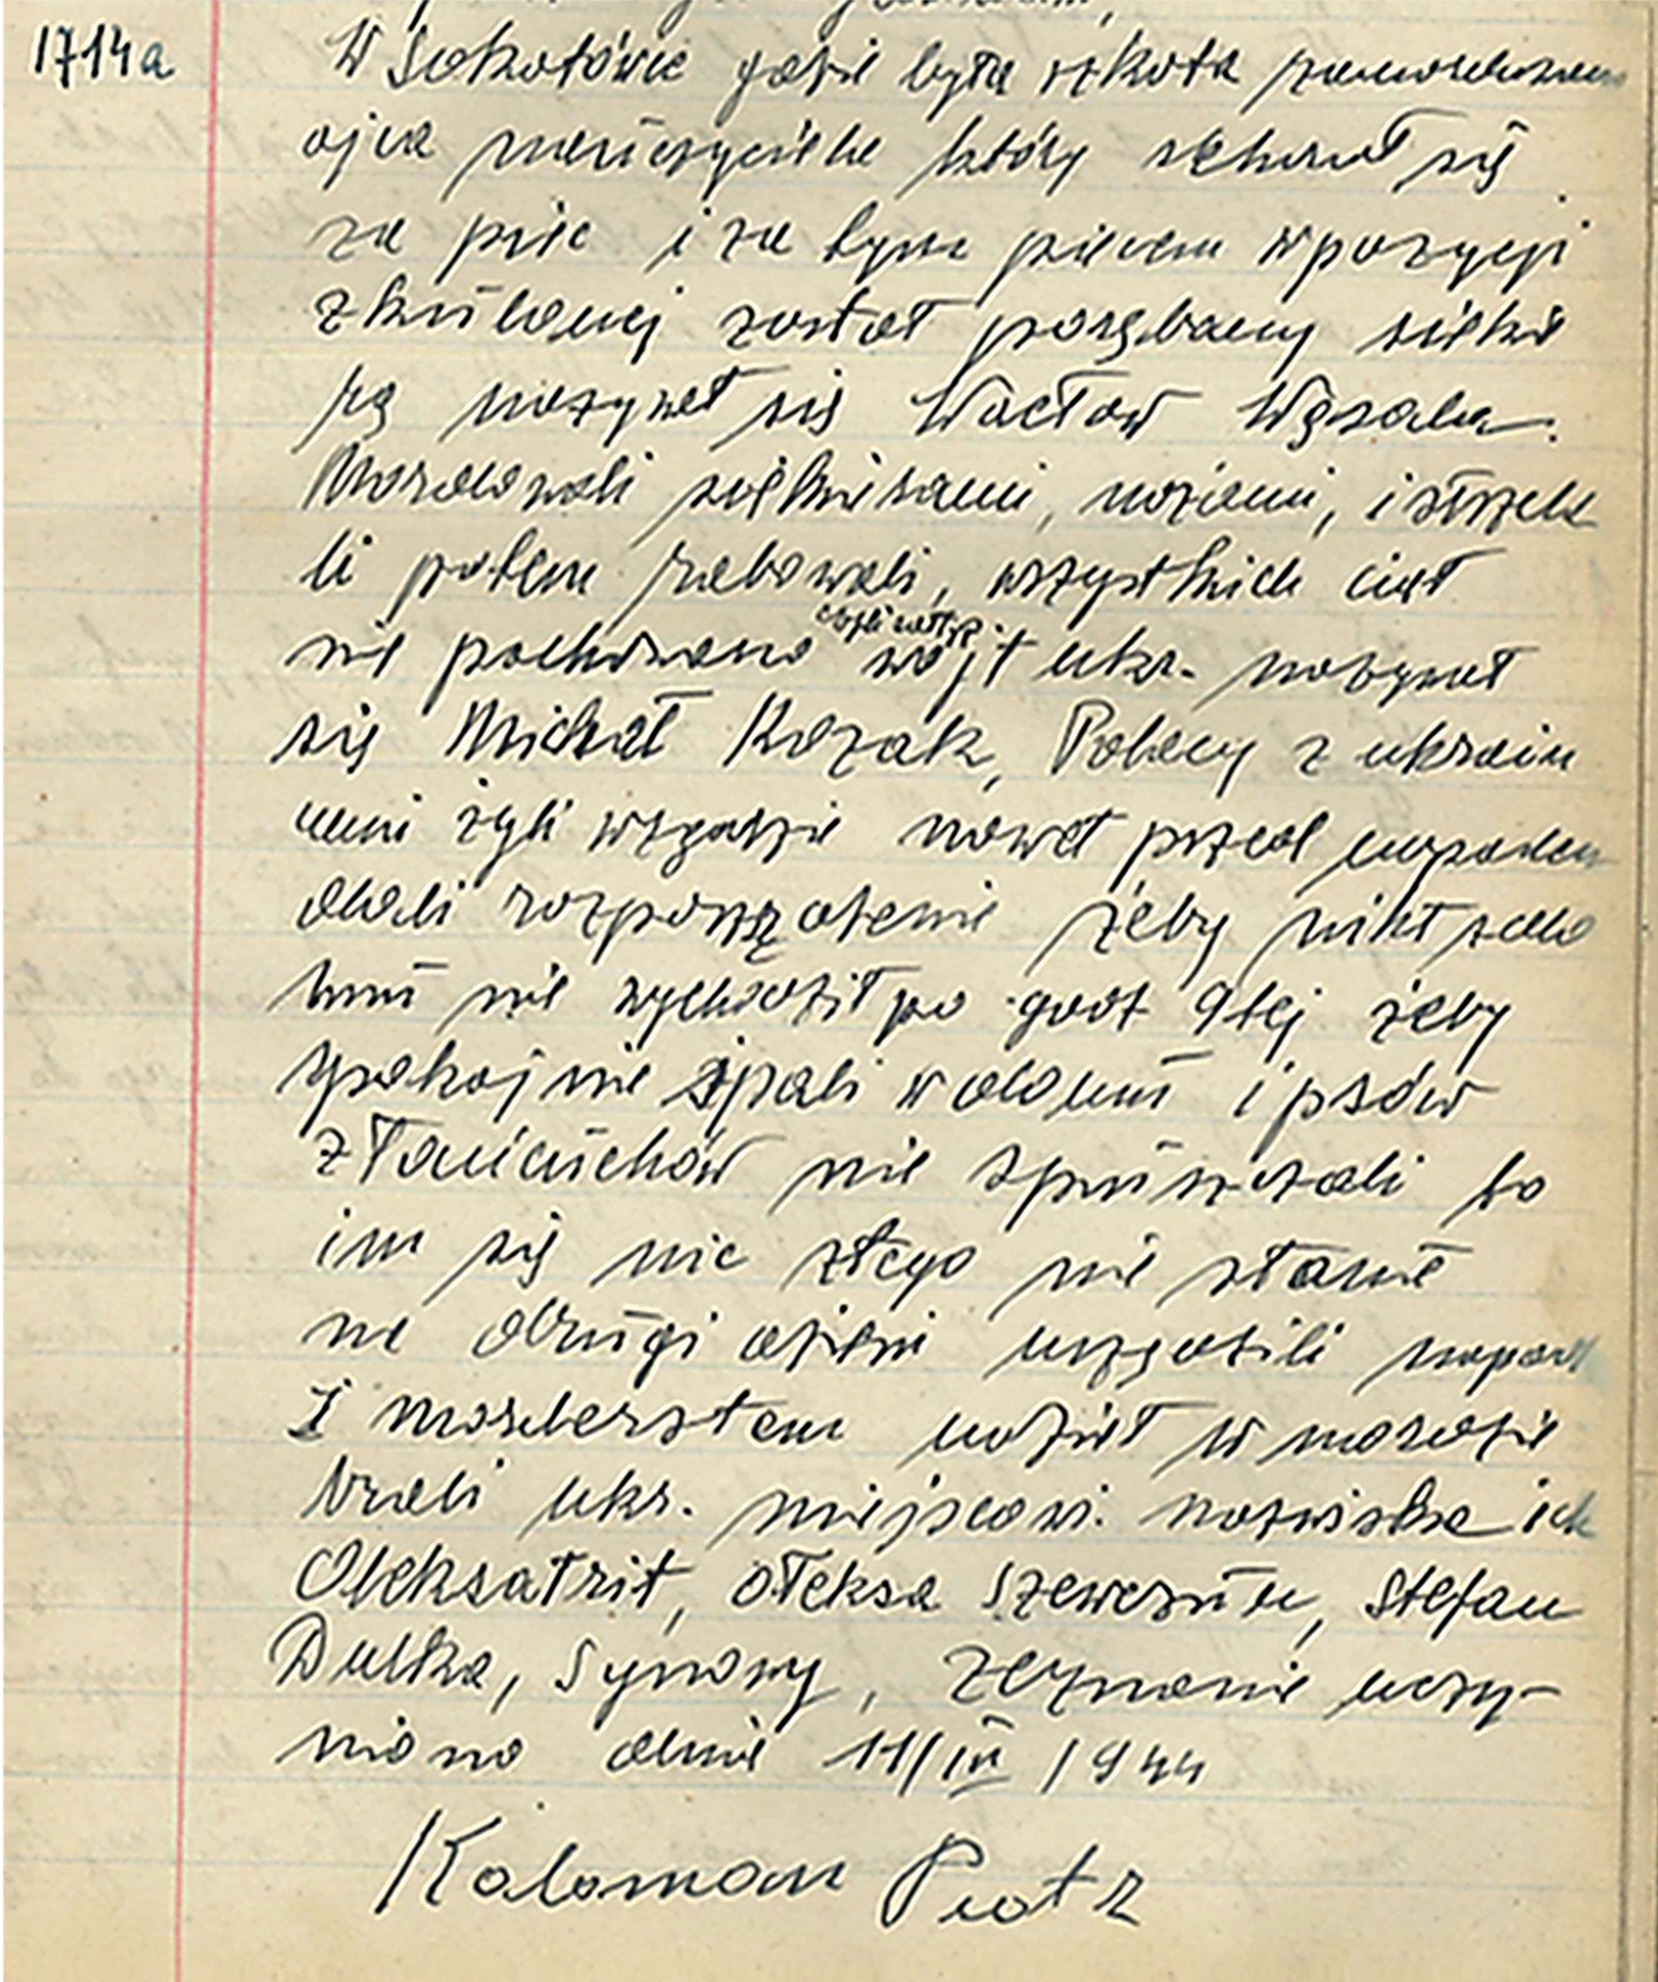 1714a
W Sokołówce gdzie była szkoła zamordowano
ojca nauczycielki który schował się
za piec i za tym piecem w pozycji
zkulonej został porąbany siekie
rą nazywał się Wacław
Mordowali siekierami, nożami, i strzela
li potem rabowali, wszystkich ciał
nie pochowano wójt ukr. nazywał
się Michał Kozak, Polacy z ukraiń
cami żyli w zgodzie nawet przed napadem
dali rozporządzenie żeby nikt z do
mu nie wychodził po godz 9tej żeby
spokojnie spali w domu i psów
z łańcuchów nie spuszczali to
im się nic złego nie stanie
na drugi dzień urządzili napad
I morderstwem udział w mordzie
brali ukr. miejscowi. nazwiska ich
Oleksa Trit, Ołeksa Szewczuk, Stefan
Dutka, Synowy, zeznanie uczy-
niono dnia 11/IV /944
Kaloman Piotr